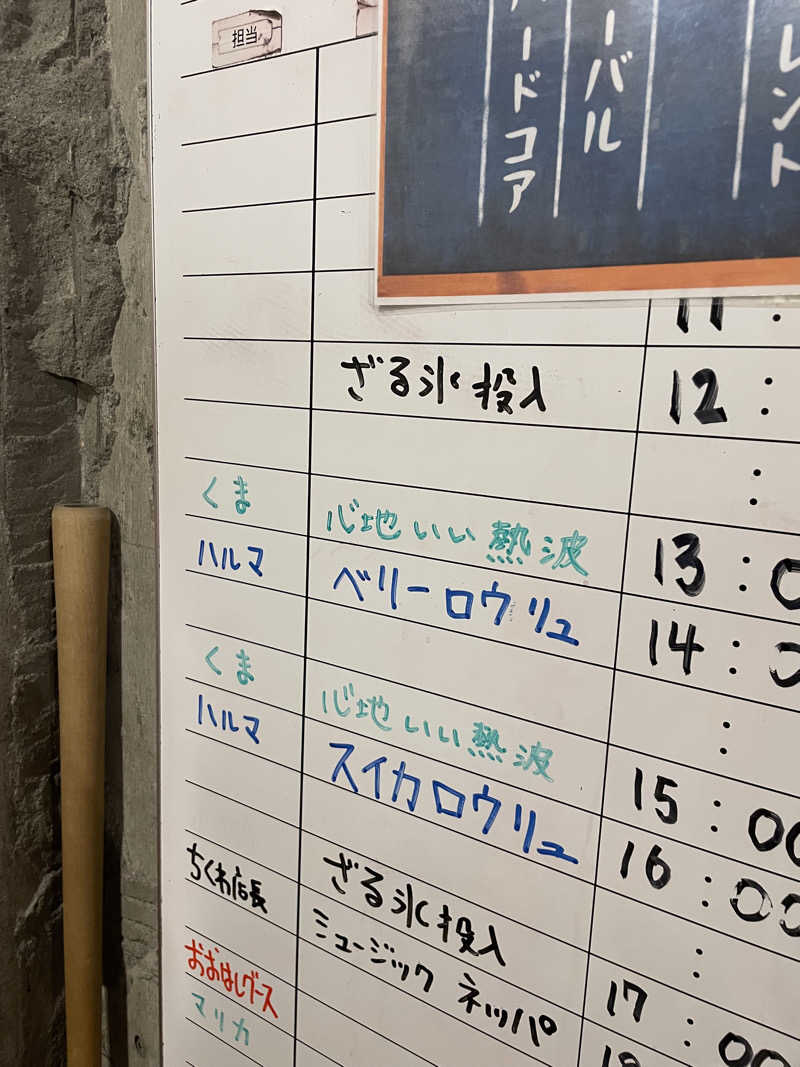 担当
ードコア
ーバル
レント
11:
ざる氷投入 12:
:
くま 心地いい熱波 13:0
ハルマ ベリーロウリュ 14:0
:
くま 心地いい熱波 15:00
ハルマ スイカロウリュ 16:00
:
ざる氷投入 17:00
ちくわ店長 ミュージックネッパ 18
おおはしグース
マリカ